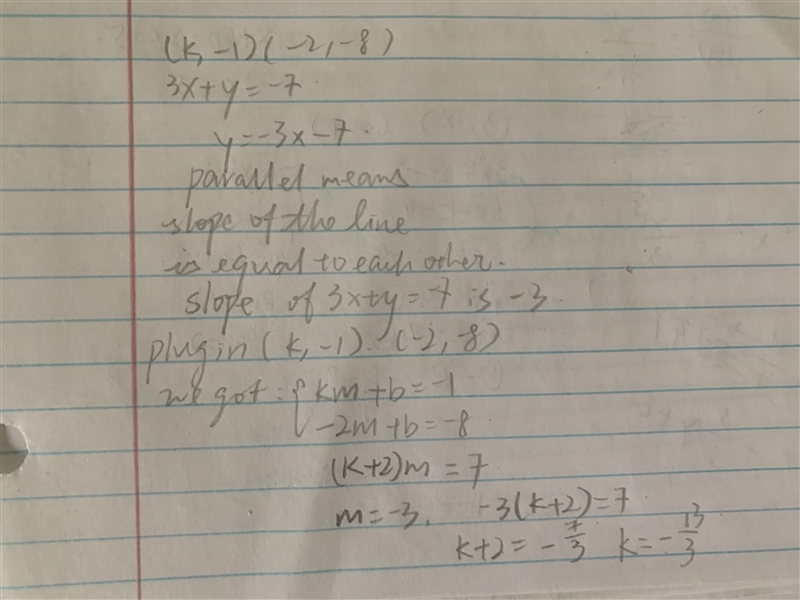 (k, -1) (-2, -8)
3x+y=-7
y=-3x-7.
parallel means
slope of the line
is equal to each other.
slope of 3x+y=-7 is -3.
plugin (k, -1). (-2, -8)
we got: { km+b=-1
-2m+b=-8
(k+2)m=7
m=-3, -3(k+2)=7
k+2=-7/3 k=-13/3